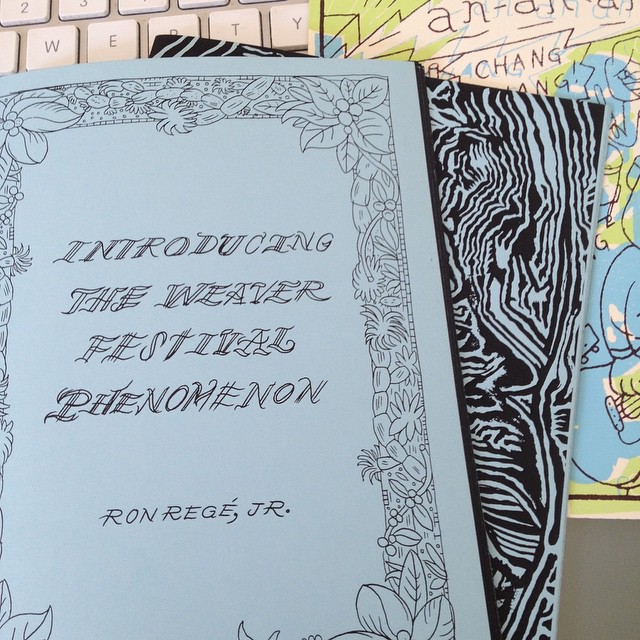 2 3
W E R T Y
CHANG
INTRODUCING
THE WEAVER
FESTIVAL
PHENOMENON
RON REGÉ, JR.